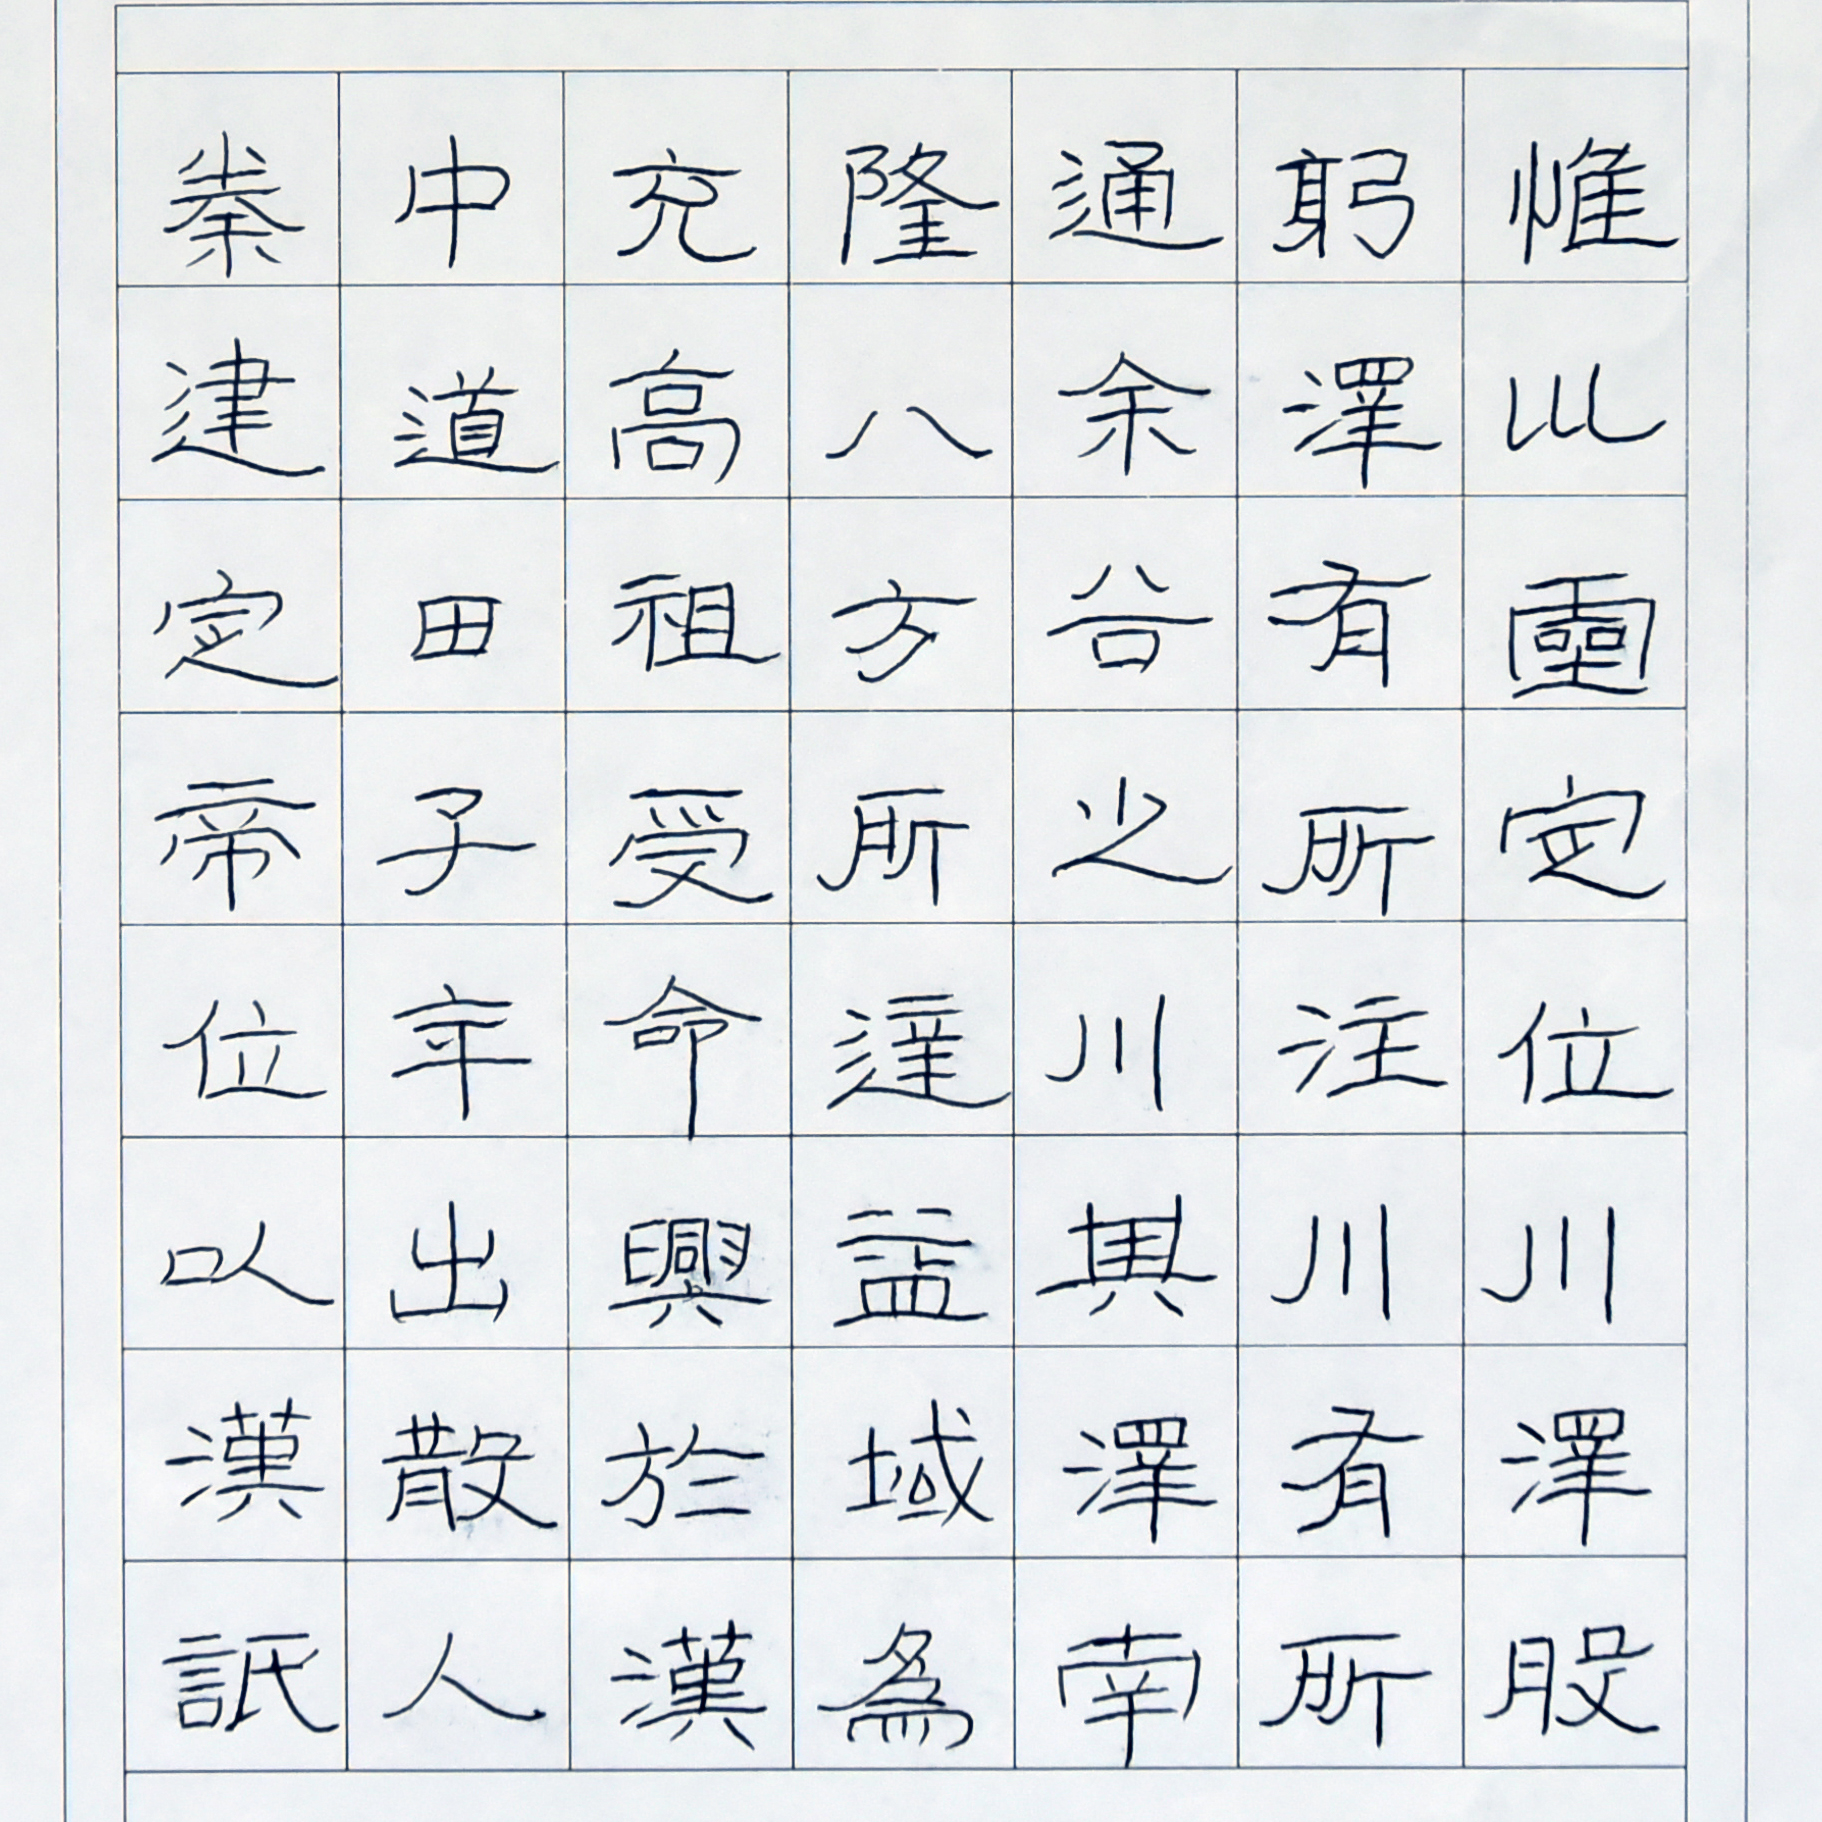 惟巛靈定位川澤股
躬澤有所注川有所
通余谷之川其澤南
隆八方所達益域為
充高祖受命興於漢
中道由子午出散入
秦建定帝位以漢詆